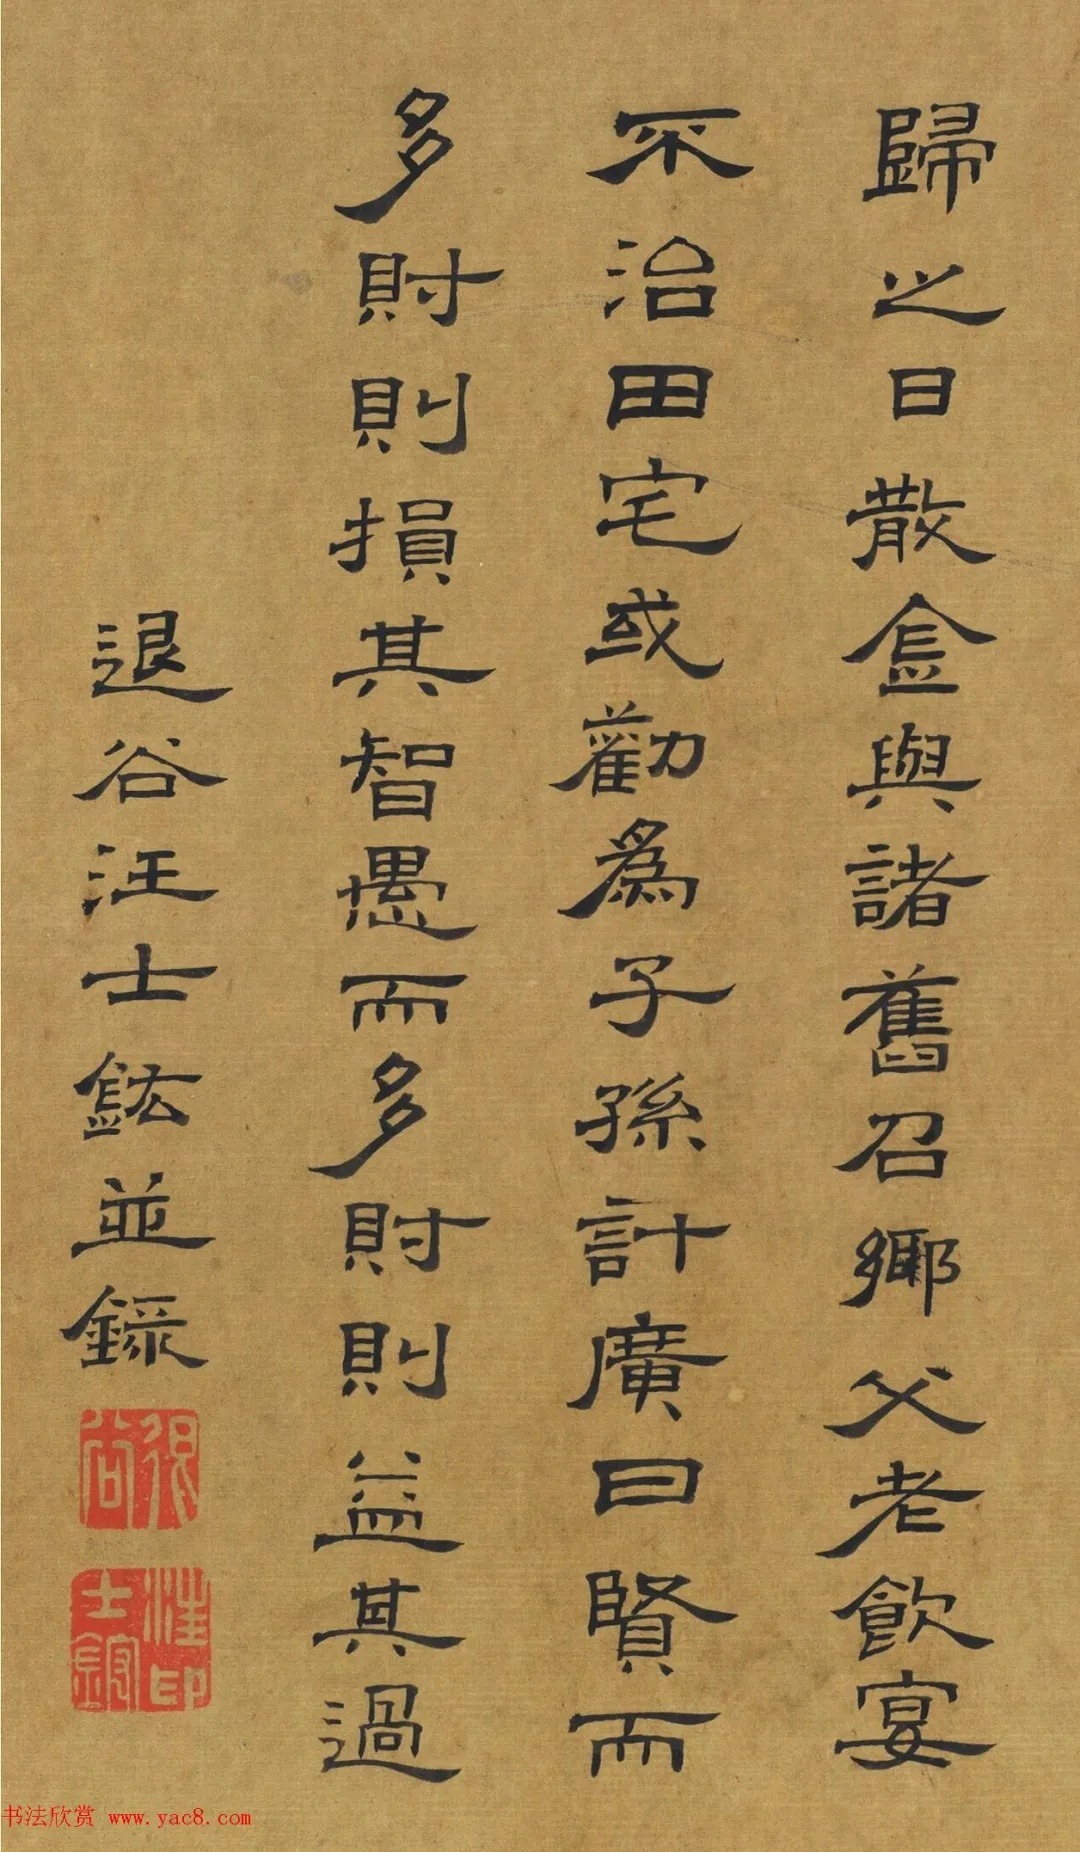 歸之日散金與諸舊召鄉父老飲宴
不治田宅或勸爲子孫計廣曰賢而
多財則損其智愚而多財則益其過
退谷汪士鋐並錄
汪士鋐印
书法欣赏 www.yac8.com